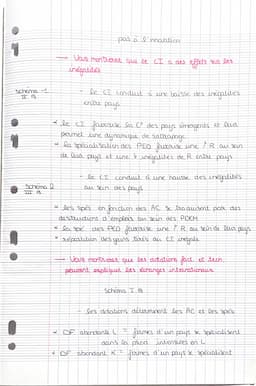 pas à l'innovation
→ Vous montrerez que le CI a des effets sur les
inégalités
Schéma 1
- Le CI conduit à une baisse des inégalités
entre pays
* Le CI favorise la C° des pays émergents et leur
permet une dynamique de rattrapage
* La spécialisation des PED favorise une ↑ R au sein
de leur pays et une ↓ inégalités de R entre pays
- Le CI conduit à une hausse des inégalités
au sein des pays
Schéma 2
* les spé en fonction des AC se traduisent par des
destructions d'emplois au sein des PDEM
* la spé des PED favorise une ↑ R au sein de leur pays
* répartition des gains liés au CI inégale
→ Vous montrerez que les dotations fact. et techn.
peuvent expliquer les échanges internationaux
Schéma I. B
- Les dotations déterminent les AC et les spés
* DF abondante L = firmes d'un pays se spécialisent
dans la prod intensives en L
* DF abondant K = firmes d'un pays se spécialisent